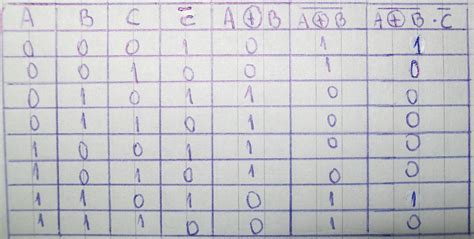 A B C C̅ A⊕B A̅⊕̅B̅ A̅⊕̅B̅·C̅
0 0 0 1 0 1 1
0 0 1 0 0 1 0
0 1 0 1 1 0 0
0 1 1 0 1 0 0
1 0 0 1 1 0 0
1 0 1 0 1 0 0
1 1 0 1 0 1 1
1 1 1 0 0 1 0